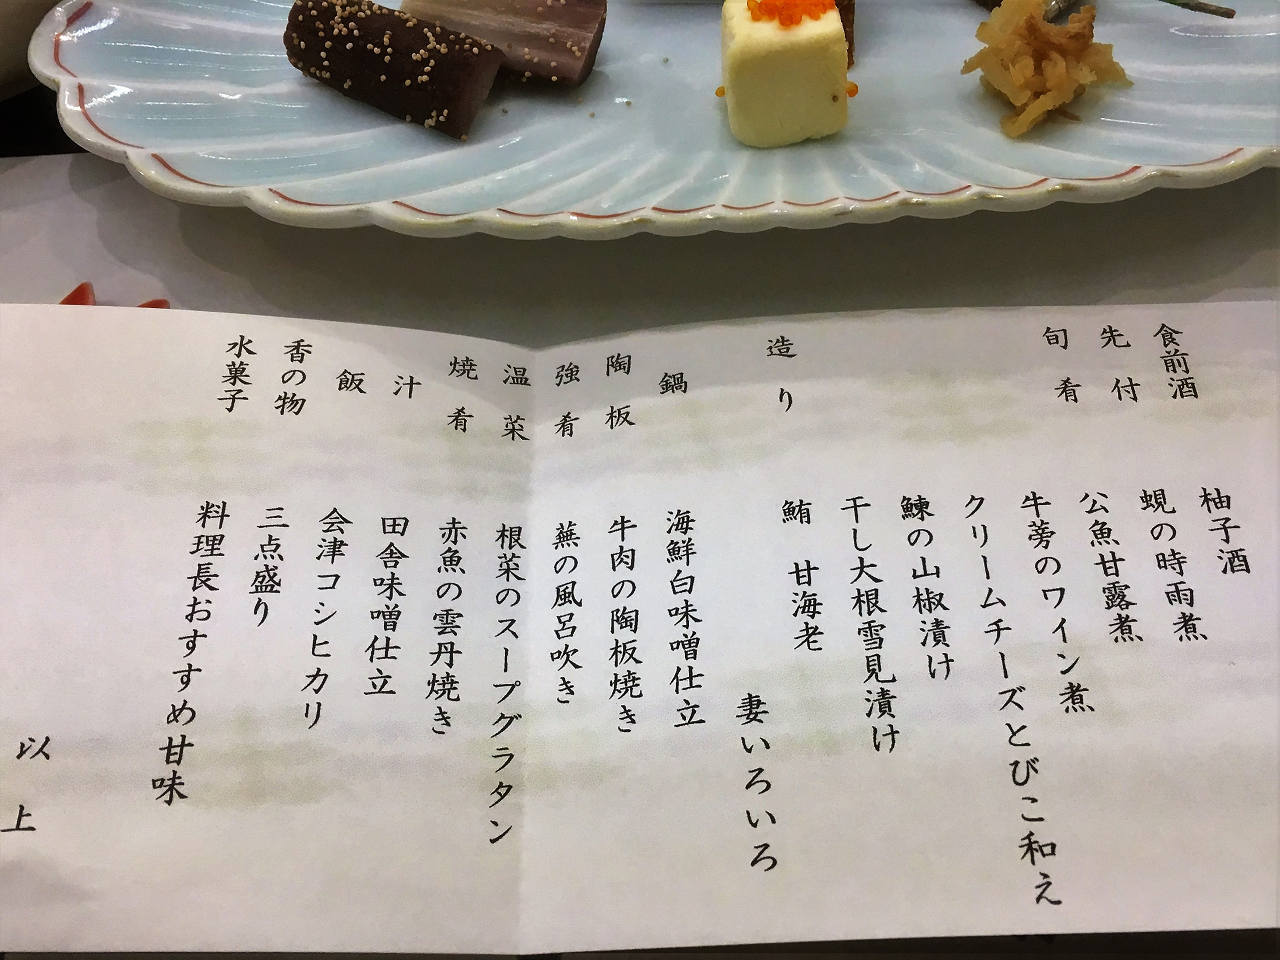 食前酒 柚子酒
先付 蜆の時雨煮
旬肴 公魚甘露煮
牛蒡のワイン煮
クリームチーズとびこ和え
鰊の山椒漬け
干し大根雪見漬け
造り 鮪 甘海老
妻いろいろ
鍋 海鮮白味噌仕立
陶板 牛肉の陶板焼き
強肴 蕪の風呂吹き
温菜 根菜のスープグラタン
焼肴 赤魚の雲丹焼き
汁 田舎味噌仕立
飯 会津コシヒカリ
香の物 三点盛り
水菓子 料理長おすすめ甘味
以上